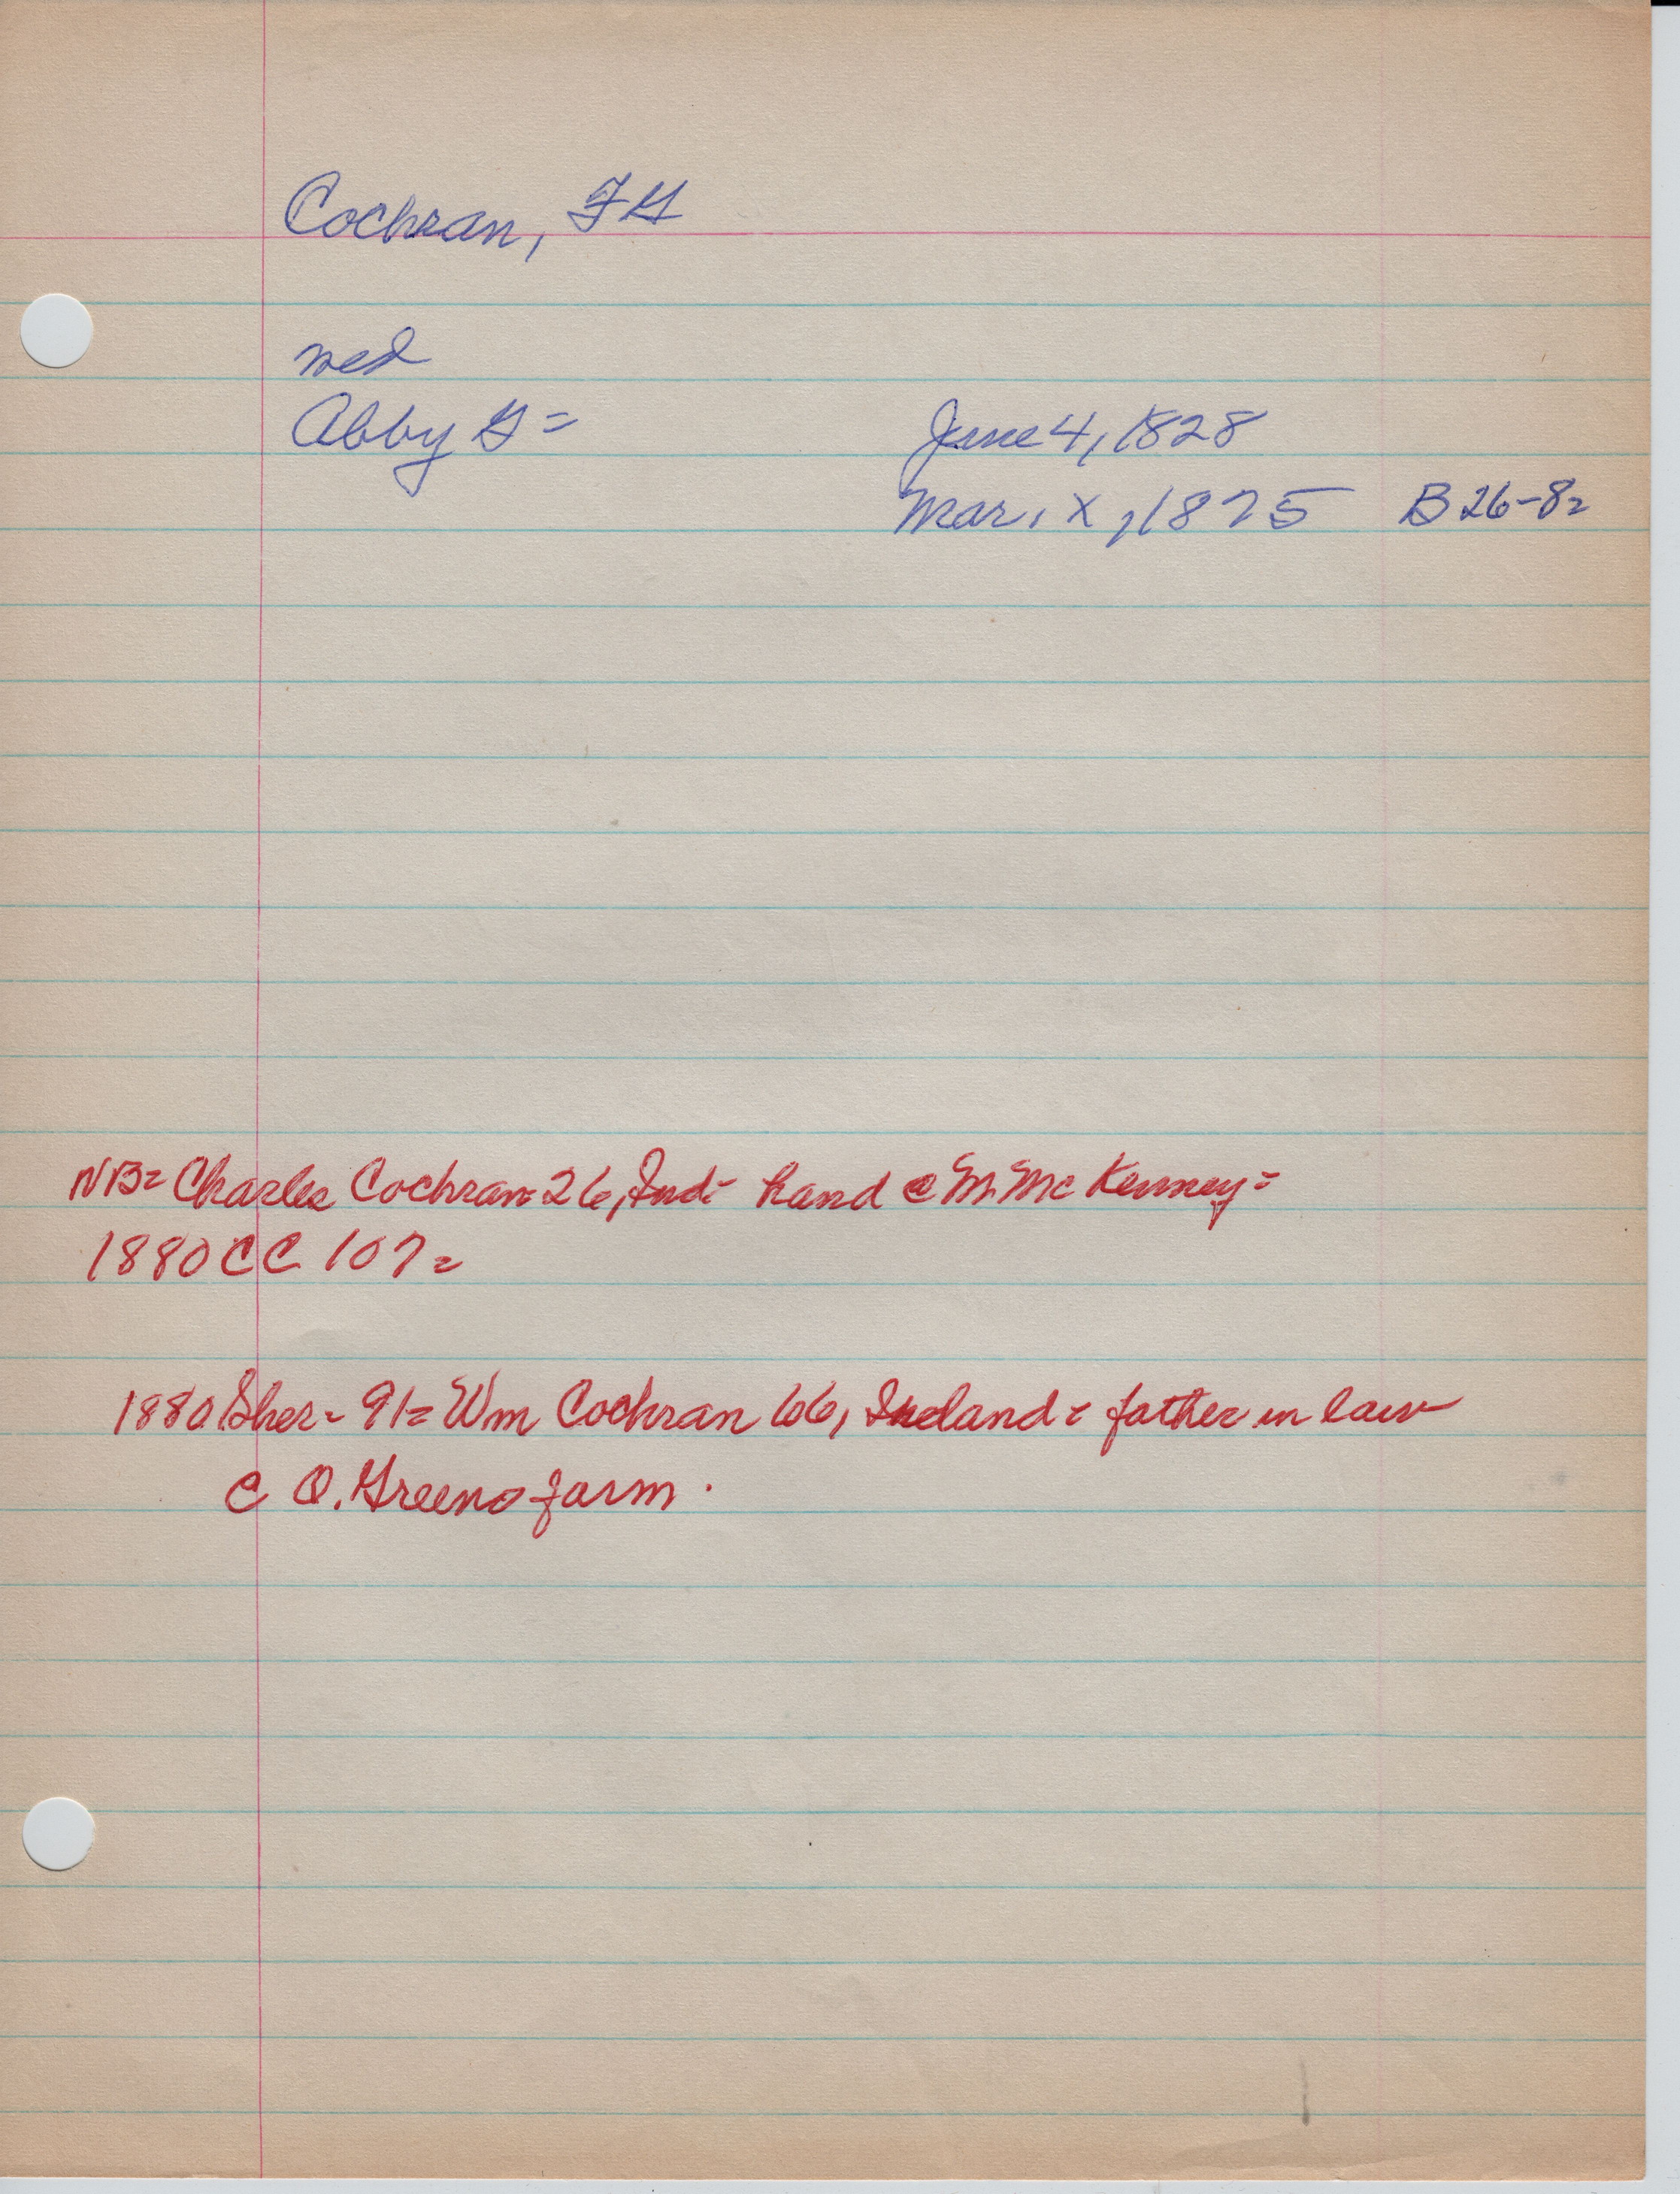 Cochran, F G
wed
Abby G = June 4, 1828
Mar. X, 1875 B 26-8=
NB= Charles Cochran = 26, Ind- hand @ M. McKenney =
1880 CC 107=
1880 Sher- 91= Wm Cochran 66, Ireland = father in law
@ O. Greens farm.